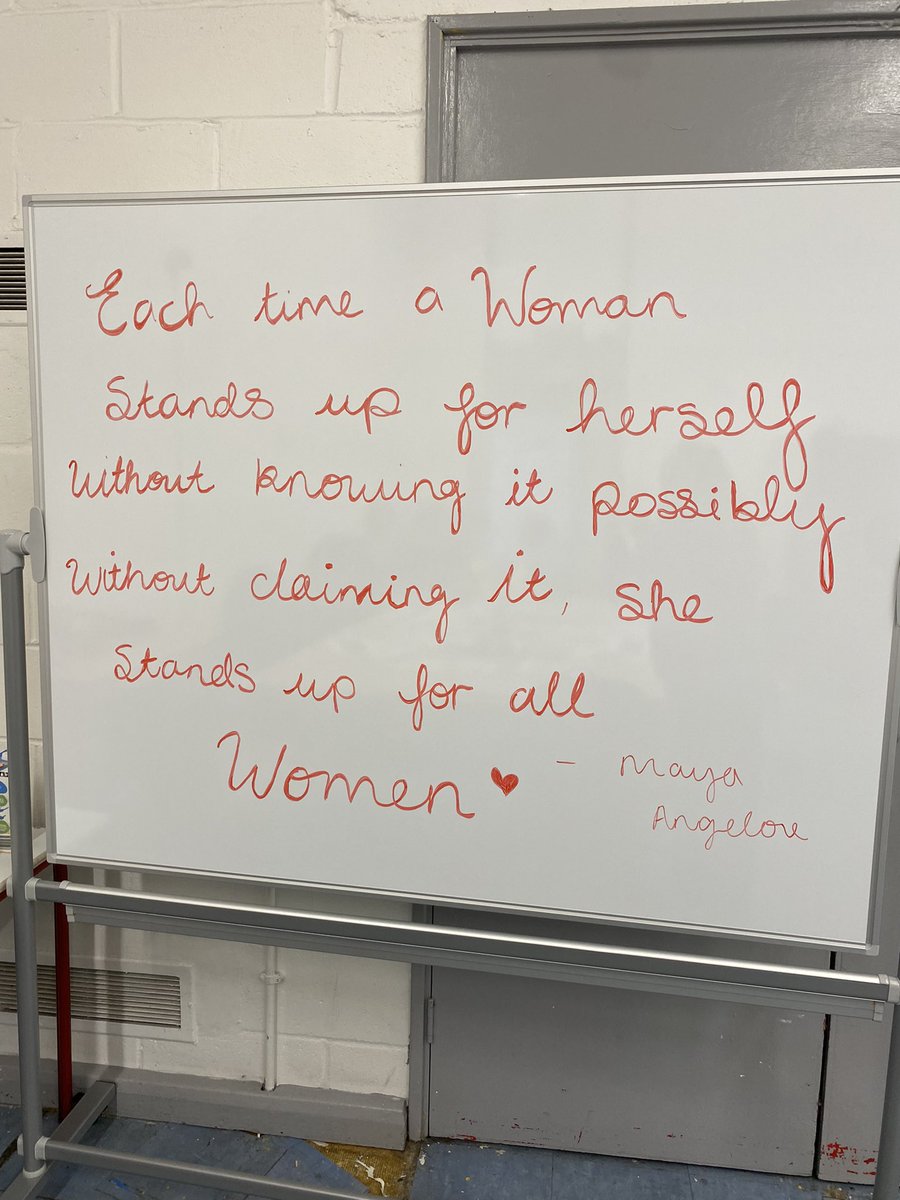 Each time a Woman
Stands up for herself
Without knowing it possibly
Without claiming it, she
Stands up for all
Women ♥ - Maya
Angelou